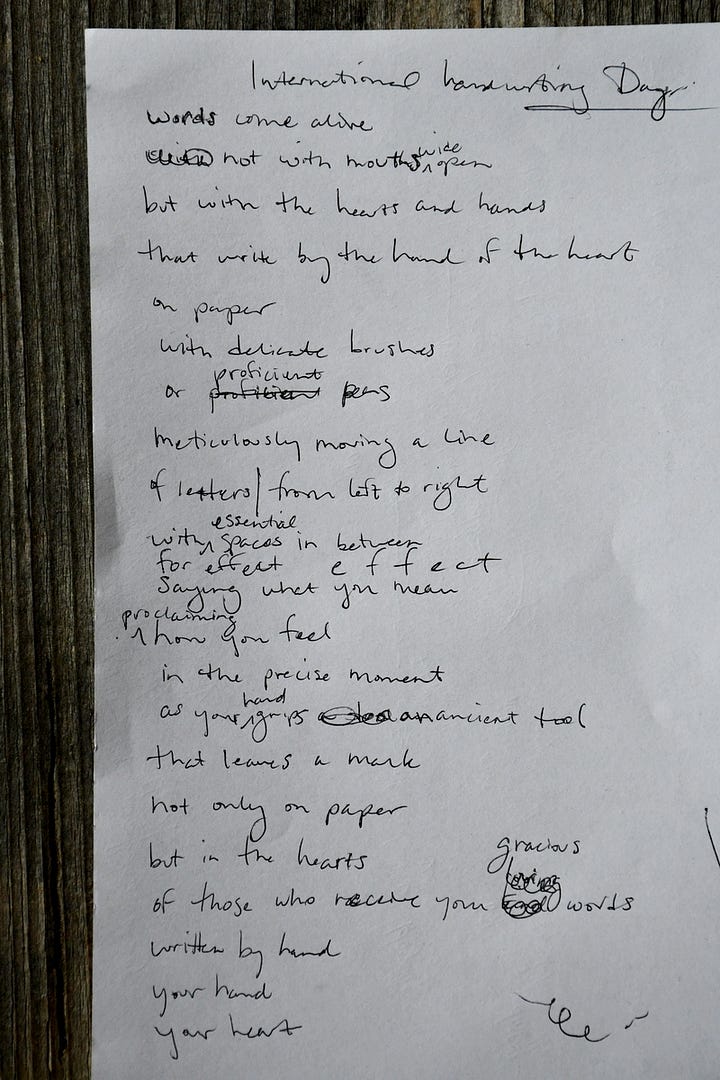 International handwriting Day
words come alive
not with mouths wide open
but with the hearts and hands
that write by the hand of the heart
on paper
with delicate brushes
or proficient pens
meticulously moving a line
of letters/from left to right
with essential spaces in between
for effect e f f e c t
saying what you mean
proclaiming how you feel
in the precise moment
as your hand grips an ancient tool
that leaves a mark
not only on paper
but in the hearts
of those who receive your gracious words
written by hand
your hand
your heart